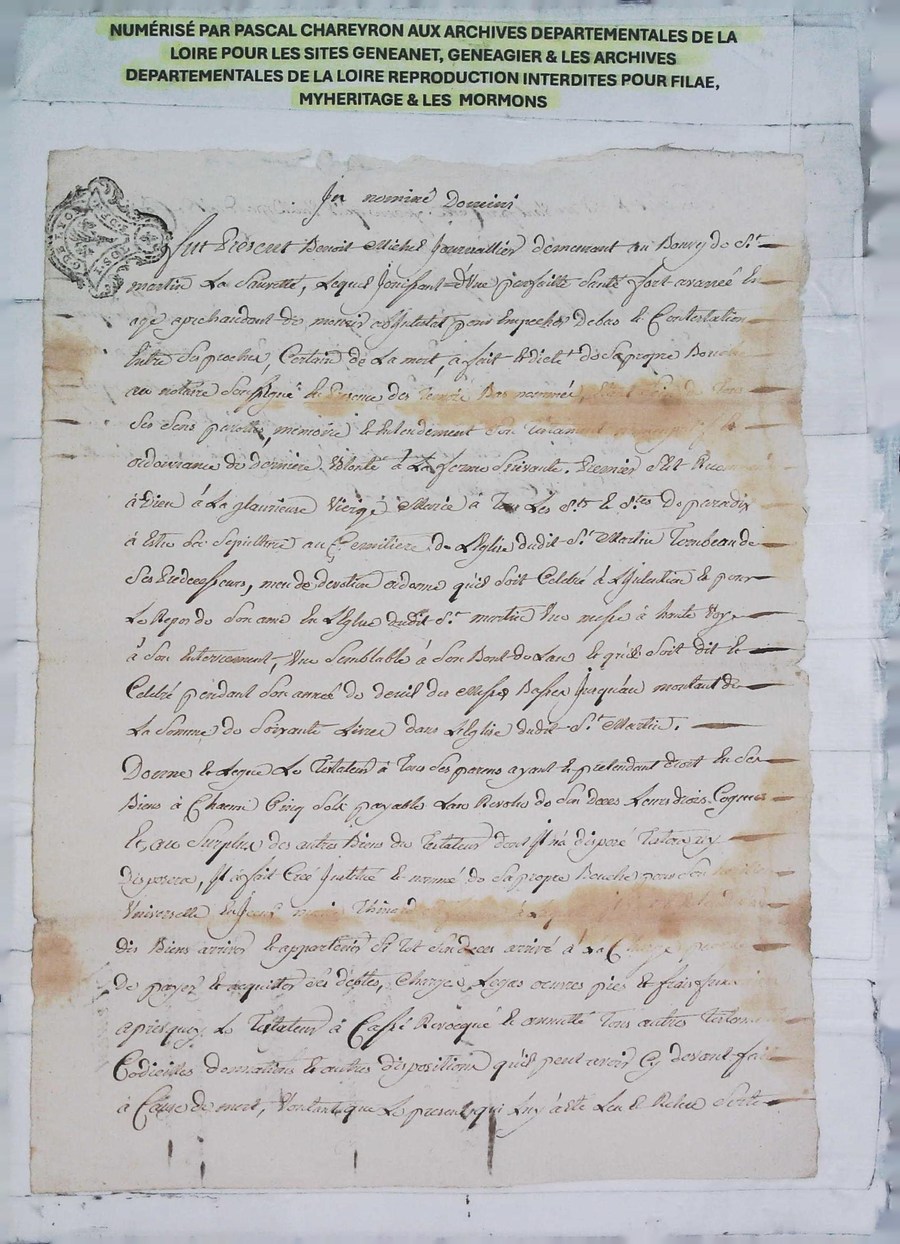 NUMÉRISÉ PAR PASCAL CHAREYRON AUX ARCHIVES DEPARTEMENTALES DE LA
LOIRE POUR LES SITES GENEANET, GENEAGIER & LES ARCHIVES
DEPARTEMENTALES DE LA LOIRE REPRODUCTION INTERDITES POUR FILAE,
MYHERITAGE & LES MORMONS
In nominé Domini
fut Présent Benoit Michel demeurant au Bourg de St
martin La Sauveté, Lequel Jouissant d'Une parfaitte Santé fort avancé En
age aprehandant de mourir abJntestat pour Empecher debas et Contestation
Entre Ses proches, Certain de La mort, a fait et dicté de Sa propre Bouche
au notaire Soussigné En Presence des Temoins Bas nommés,
Ses Sens parolle, mémoire et Entendement Son Testament
ordonnance de derniere Volonté à La forme Suivante. Premier S'est
à Dieu à La glorieuse Vierge Marie à Tous Les Sts et Stes De paradix
à Estre Sa Sepulture au Cemitiere de L'Eglise dudit St Martin Tombeau de
Ses Predecesseurs, meu de devotion ordonne qu'il Soit Celebré à L'Jntention et pour
Le Repos de Son ame En L'Eglise dudit St martin Une messe à haute Voy
à Son Enterrement, Une Semblable à Son Bout de L'an et qu'il Soit dit et
Celebré pendant Son année de deuil des Messes Basses Jusqu'au montant de
La Somme de Soixante Livres dans L'Eglise dudit St Martin.
Donne et Legue Le Testateur à Tous Ses parens ayant et pretendant droit En Ses
Biens à Chacun Cinq Sols payables L'an Revolu de Son deces
Et, au Surplus des autres Biens du Testateur dont Jl n'a disposé
Disposera, Jl a fait Créé Jnstitué et nommé de Sa propre Bouche pour Son
Universelle
Dis Biens arriver et appartenir Si tot Son deces arrivé à La Charge
De payer et acquitter Ses debtes, Charges, Legas oeuvres pies et frais
apres quoy Le Testateur à Cassé Revocqué et annullé Tous autres
Codicilles donnations Et autres dispositions qu'il peut avoir Cy devant fait
à Cause de mort, Voulant que Le present qui Luy a été Leu et Releu